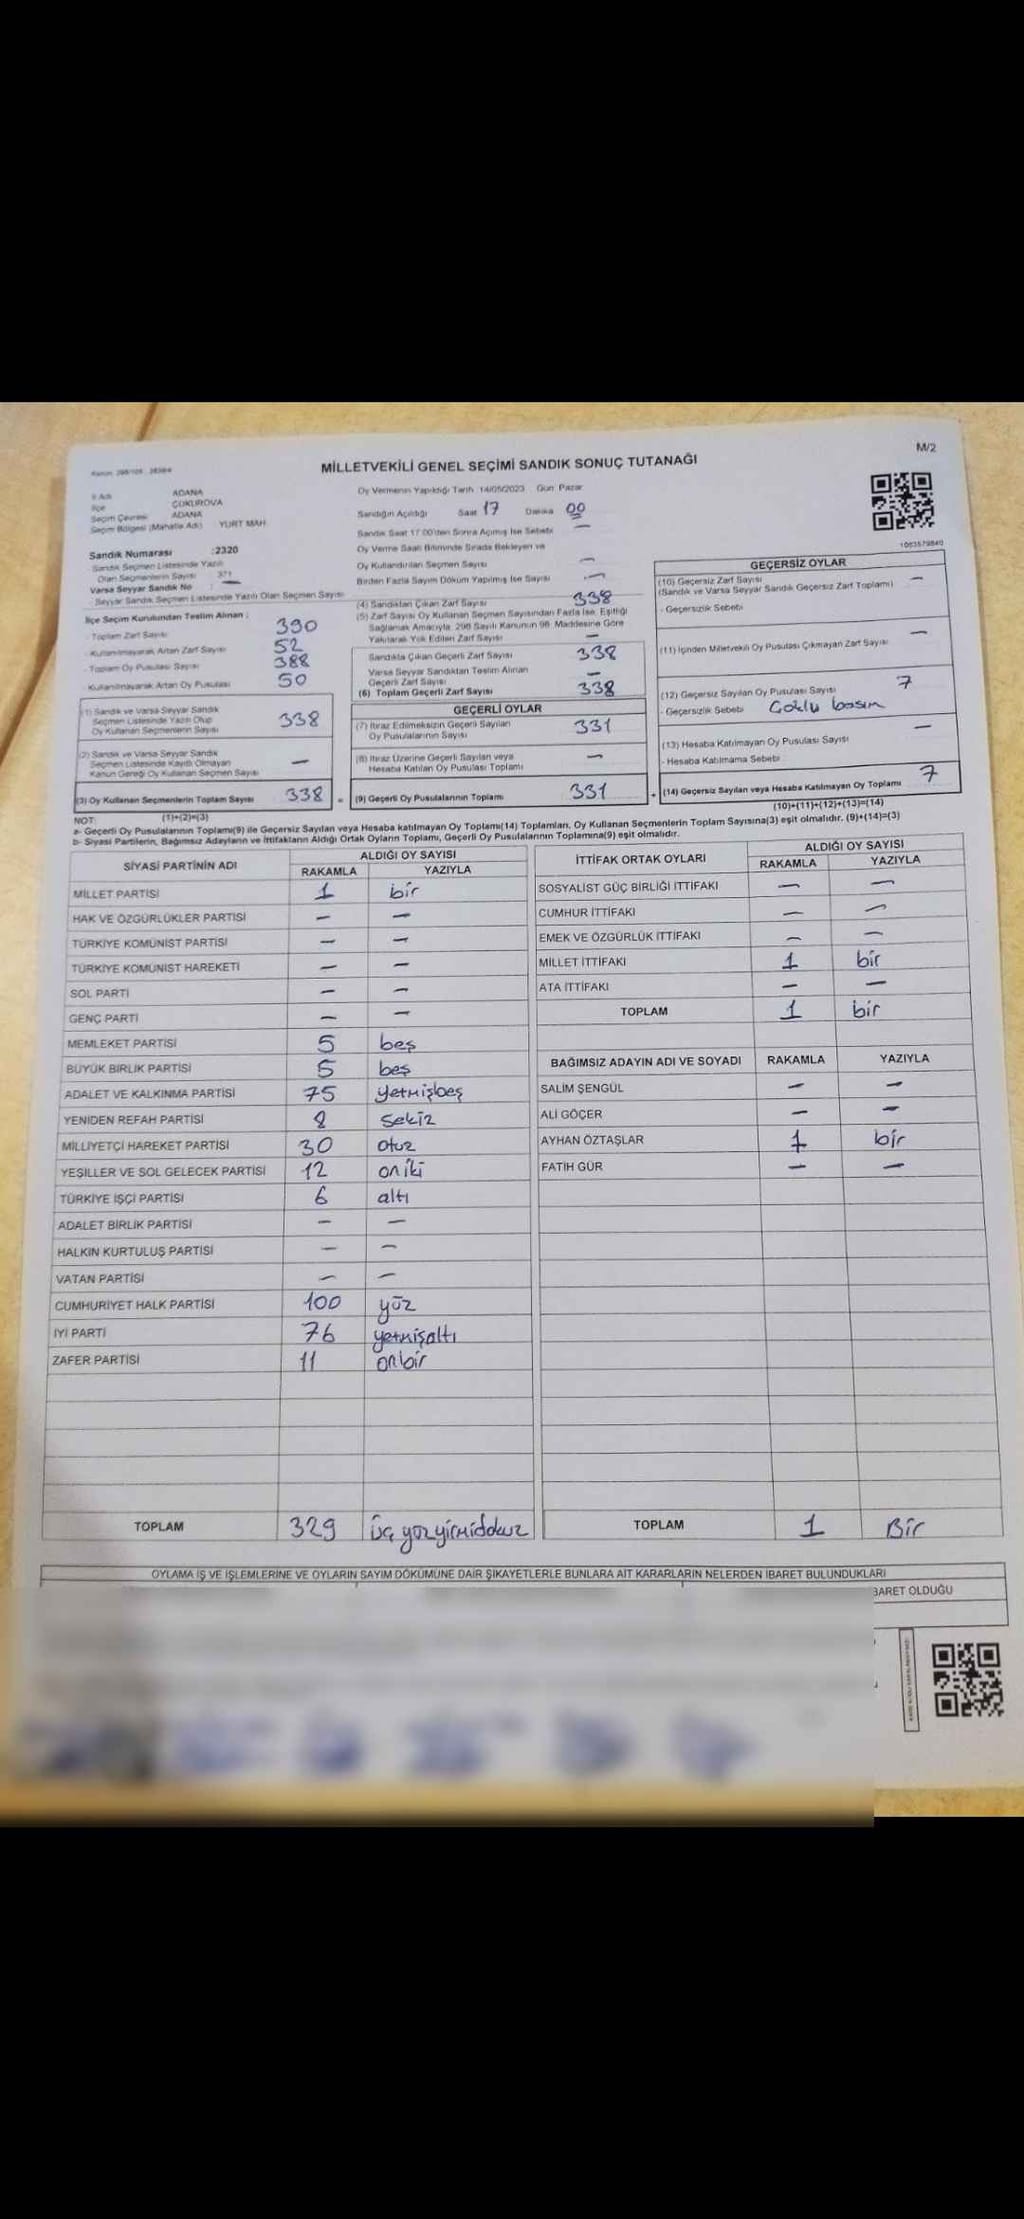 M/2
MİLLETVEKİLİ GENEL SEÇİMİ SANDIK SONUÇ TUTANAĞI
İl Adı ADANA
İlçe ÇUKUROVA
Seçim Çevresi ADANA
Seçim Bölgesi (Mahalle Adı) YURT MAH.
Sandık Numarası :2320
Sandık Seçmen Listesinde Yazılı
Olan Seçmenlerin Sayısı 371
Varsa Seyyar Sandık No : —
Seyyar Sandık Seçmen Listesinde Yazılı Olan Seçmen Sayısı
İlçe Seçim Kurulundan Teslim Alınan :
- Toplam Zarf Sayısı 390
- Kullanılmayarak Artan Zarf Sayısı 52
- Toplam Oy Pusulası Sayısı 388
- Kullanılmayarak Artan Oy Pusulası 50
(1) Sandık ve Varsa Seyyar Sandık
Seçmen Listesinde Yazılı Olup
Oy Kullanan Seçmenlerin Sayısı 338
(2) Sandık ve Varsa Seyyar Sandık
Seçmen Listesinde Kayıtlı Olmayan
Kanun Gereği Oy Kullanan Seçmen Sayısı —
(3) Oy Kullanan Seçmenlerin Toplam Sayısı 338 =
(1)+(2)=(3)
Oy Vermenin Yapıldığı Tarih 14/05/2023 Gün Pazar
Sandığın Açıldığı Saat 17 Dakika 00
Sandık Saat 17.00'den Sonra Açılmış İse Sebebi —
Oy Verme Saati Bitiminde Sırada Bekleyen ve
Oy Kullandırılan Seçmen Sayısı —
Birden Fazla Sayım Döküm Yapılmış İse Sayısı —
(4) Sandıktan Çıkan Zarf Sayısı 338
(5) Zarf Sayısı Oy Kullanan Seçmen Sayısından Fazla İse, Eşitliği
Sağlamak Amacıyla, 298 Sayılı Kanunun 98. Maddesine Göre
Yakılarak Yok Edilen Zarf Sayısı —
Sandıkta Çıkan Geçerli Zarf Sayısı 338
Varsa Seyyar Sandıktan Teslim Alınan
Geçerli Zarf Sayısı —
(6) Toplam Geçerli Zarf Sayısı 338
GEÇERLİ OYLAR
(7) İtiraz Edilmeksizin Geçerli Sayılan
Oy Pusulalarının Sayısı 331
(8) İtiraz Üzerine Geçerli Sayılan veya
Hesaba Katılan Oy Pusulası Toplamı —
(9) Geçerli Oy Pusulalarının Toplamı 331 +
1083579840
GEÇERSİZ OYLAR
(10) Geçersiz Zarf Sayısı —
(Sandık ve Varsa Seyyar Sandık Geçersiz Zarf Toplamı)
- Geçersizlik Sebebi
(11) İçinden Milletvekili Oy Pusulası Çıkmayan Zarf Sayısı —
(12) Geçersiz Sayılan Oy Pusulası Sayısı 7
- Geçersizlik Sebebi Çoklu basım
(13) Hesaba Katılmayan Oy Pusulası Sayısı —
- Hesaba Katılmama Sebebi
(14) Geçersiz Sayılan veya Hesaba Katılmayan Oy Toplamı 7
(10)+(11)+(12)+(13)=(14)
NOT:
a- Geçerli Oy Pusulalarının Toplamı(9) ile Geçersiz Sayılan veya Hesaba katılmayan Oy Toplamı(14) Toplamları, Oy Kullanan Seçmenlerin Toplam Sayısına(3) eşit olmalıdır. (9)+(14)=(3)
b- Siyasi Partilerin, Bağımsız Adayların ve İttifakların Aldığı Ortak Oyların Toplamı, Geçerli Oy Pusulalarının Toplamına(9) eşit olmalıdır.
SİYASİ PARTİNİN ADI ALDIĞI OY SAYISI
RAKAMLA YAZIYLA
MİLLET PARTİSİ 1 bir
HAK VE ÖZGÜRLÜKLER PARTİSİ — —
TÜRKİYE KOMÜNİST PARTİSİ — —
TÜRKİYE KOMÜNİST HAREKETİ — —
SOL PARTİ — —
GENÇ PARTİ — —
MEMLEKET PARTİSİ 5 beş
BÜYÜK BİRLİK PARTİSİ 5 beş
ADALET VE KALKINMA PARTİSİ 75 yetmişbeş
YENİDEN REFAH PARTİSİ 8 sekiz
MİLLİYETÇİ HAREKET PARTİSİ 30 otuz
YEŞİLLER VE SOL GELECEK PARTİSİ 12 oniki
TÜRKİYE İŞÇİ PARTİSİ 6 altı
ADALET BİRLİK PARTİSİ — —
HALKIN KURTULUŞ PARTİSİ — —
VATAN PARTİSİ — —
CUMHURİYET HALK PARTİSİ 100 yüz
İYİ PARTİ 76 yetmişaltı
ZAFER PARTİSİ 11 onbir
TOPLAM 329 üç yüzyirmidokuz
İTTİFAK ORTAK OYLARI ALDIĞI OY SAYISI
RAKAMLA YAZIYLA
SOSYALİST GÜÇ BİRLİĞİ İTTİFAKI — —
CUMHUR İTTİFAKI — —
EMEK VE ÖZGÜRLÜK İTTİFAKI — —
MİLLET İTTİFAKI 1 bir
ATA İTTİFAKI — —
TOPLAM 1 bir
BAĞIMSIZ ADAYIN ADI VE SOYADI RAKAMLA YAZIYLA
SALİM ŞENGÜL — —
ALİ GÖÇER — —
AYHAN ÖZTAŞLAR 1 bir
FATİH GÜR — —
TOPLAM 1 Bir
OYLAMA İŞ VE İŞLEMLERİNE VE OYLARIN SAYIM DÖKÜMÜNE DAİR ŞİKAYETLERLE BUNLARA AİT KARARLARIN NELERDEN İBARET BULUNDUKLARI
BARET OLDUĞU